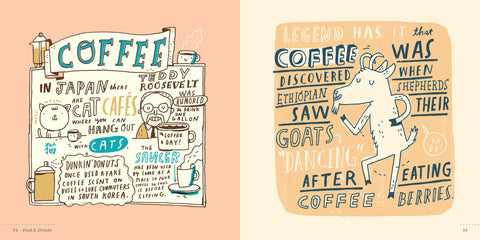 COFFEE
IN JAPAN there
ARE
CAT CAFÉS
WHERE YOU CAN
HANG OUT
with CATS
TEDDY
ROOSEVELT
WAS
RUMORED
TO DRINK
ONE
GALLON
OF COFFEE
A DAY!
DUNKIN' DONUTS
ONCE USED A FAKE
COFFEE SCENT ON
BUSES to LURE COMMUTERS
IN SOUTH KOREA.
THE
SAUCER
HAS BEEN USED
BY SOME AS A
PLACE to POUR
COFFEE to COOL
IT BEFORE
SIPPING.
94 · Food & Drinks
LEGEND HAS IT that
COFFEE WAS
DISCOVERED WHEN
ETHIOPIAN SHEPHERDS
SAW THEIR
GOATS
"DANCING"
AFTER EATING
COFFEE BERRIES.
95